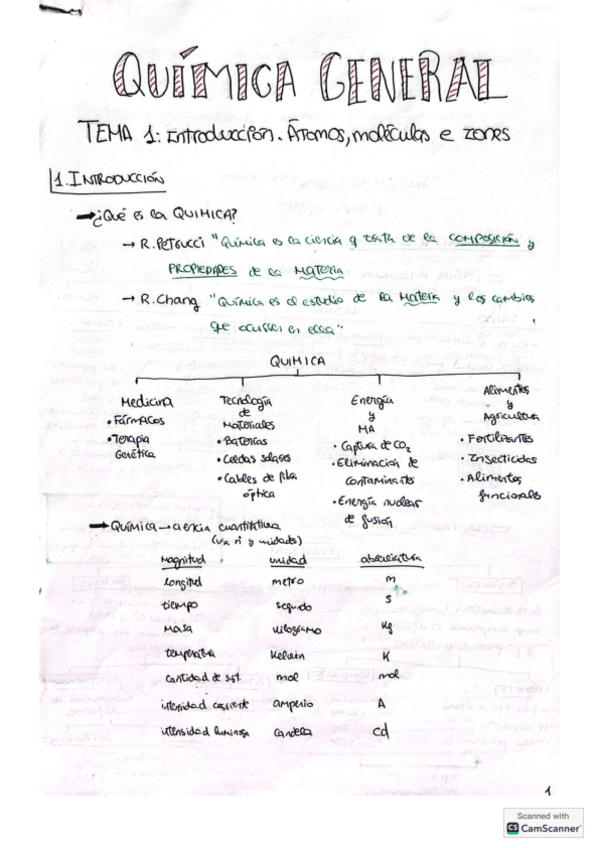 QUÍMICA GENERAL
TEMA 1: Introducción. Átomos, moléculas e iones
1. INTRODUCCIÓN
→ ¿Qué es la QUIMICA?
→ R. Petrucci "Química es la ciencia q trata de la COMPOSICIÓN y
PROPIEDADES de la MATERIA
→ R. Chang "Química es el estudio de la MATERIA y los cambios
que ocurren en ella"
QUIMICA
Medicina
• Fármacos
• Terapia
Genética
Tecnología
de
Materiales
• Baterías
• Celdas solares
• Cables de fibra
óptica
Energía
y
MA
• Captura de CO2
• Eliminación de
contaminantes
• Energía nuclear
de fusión
Alimentos
y
Agricultura
• Fertilizantes
• Insecticidas
• Alimentos
funcionales
→ Química → ciencia cuantitativa
(usa nº y unidades)
Magnitud unidad abreviatura
longitud metro m
tiempo segundo s
Masa kilogramo Kg
temperatura Kelvin K
cantidad de sust. mol mol
intensidad corriente amperio A
intensidad luminosa candela cd
1
Scanned with
CS CamScanner